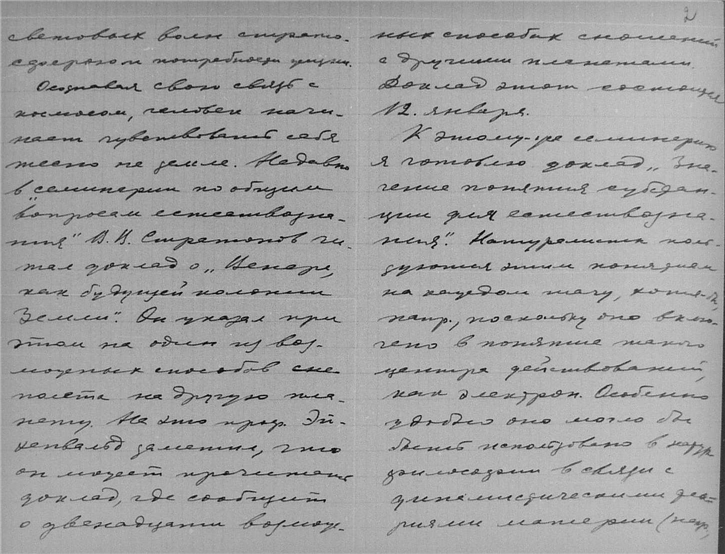 2
световых волн страто-
сферою и потребности жизни.
Осознавая свою связь с
космосом, человек начи-
нает чувствовать себя
тесно на земле. Недавно
в „семинарии по общим
вопросам естествозна-
ния" В.В. Стратонов чи-
тал доклад о „Венере,
как будущей колонии
Земли". Он указал при
этом на один из воз-
можных способов сне
полета на другую пла-
нету. На это проф. Эй-
хенвальд заметил, что
он может прочитать
доклад, где сообщит
о двенадцати возмож-
ных способах сношений
с другими планетами.
Доклад этот состоится
12. января.
К этому-же семинарию
я готовлю доклад „Зна-
чение понятия субстан-
ции для естествозна-
ния". Натуралисты поль-
зуются этим понятием
на каждом шагу, хотя-б,
напр., поскольку оно вклю-
чено в понятие такого
центра действований,
как электрон. Особенно
удобно оно могло бы
быть использовано в натур
философии в связи с
динамистическими тео-
риями материи (напр.,